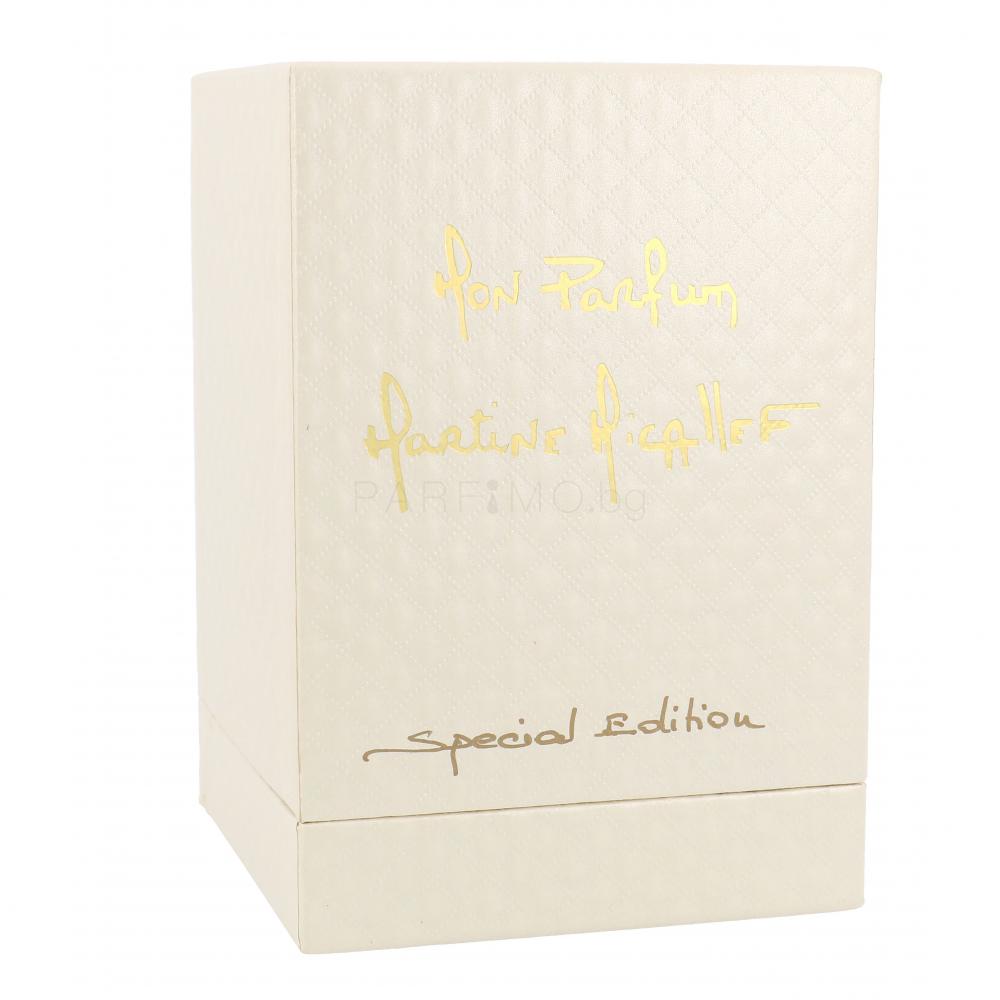 Mon Parfum
Martine Micallef
PARFIMO.bg
Special Edition